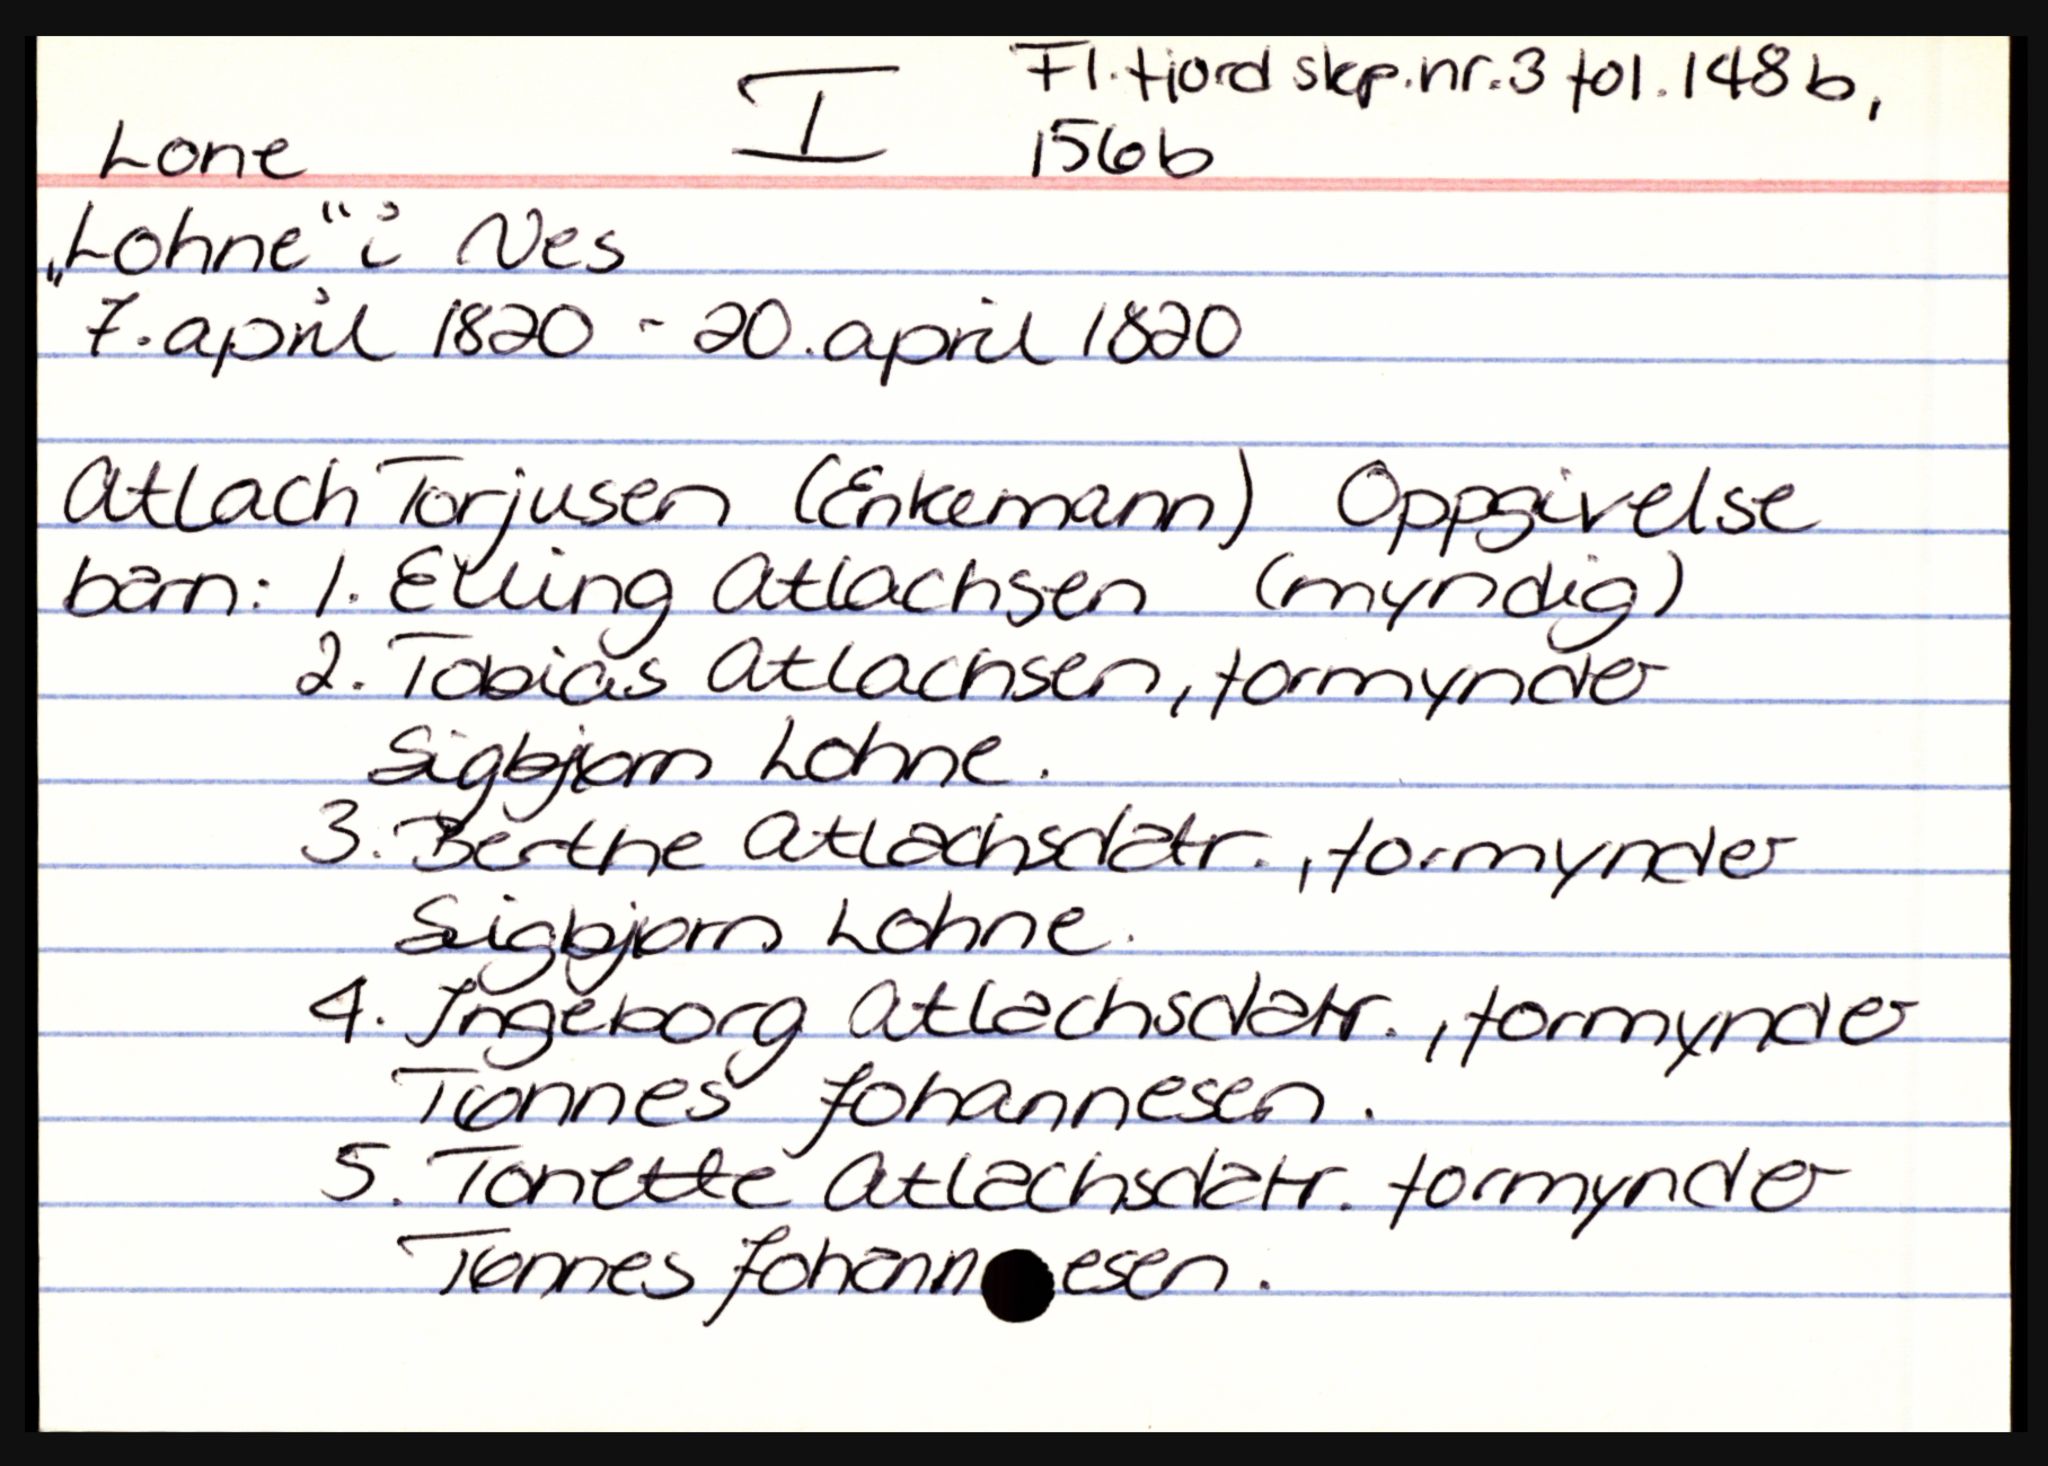 Fl.fjord skp.nr.3 fol.148b,
I
156b
Lone
„Lohne“ i Nes
7. april 1820 - 20. april 1820
Atlach Torjusen (Enkemann) Oppgivelse
barn: 1. Elling Atlachsen (myndig)
2. Tobias Atlachsen, formynder
Sigbjørn Lohne.
3. Berthe Atlachsdatr., formynder
Sigbjørn Lohne.
4. Ingeborg Atlachsdatr., formynder
Tønnes Johannesen.
5. Tonette Atlachsdatr. formynder
Tønnes Johannesen.